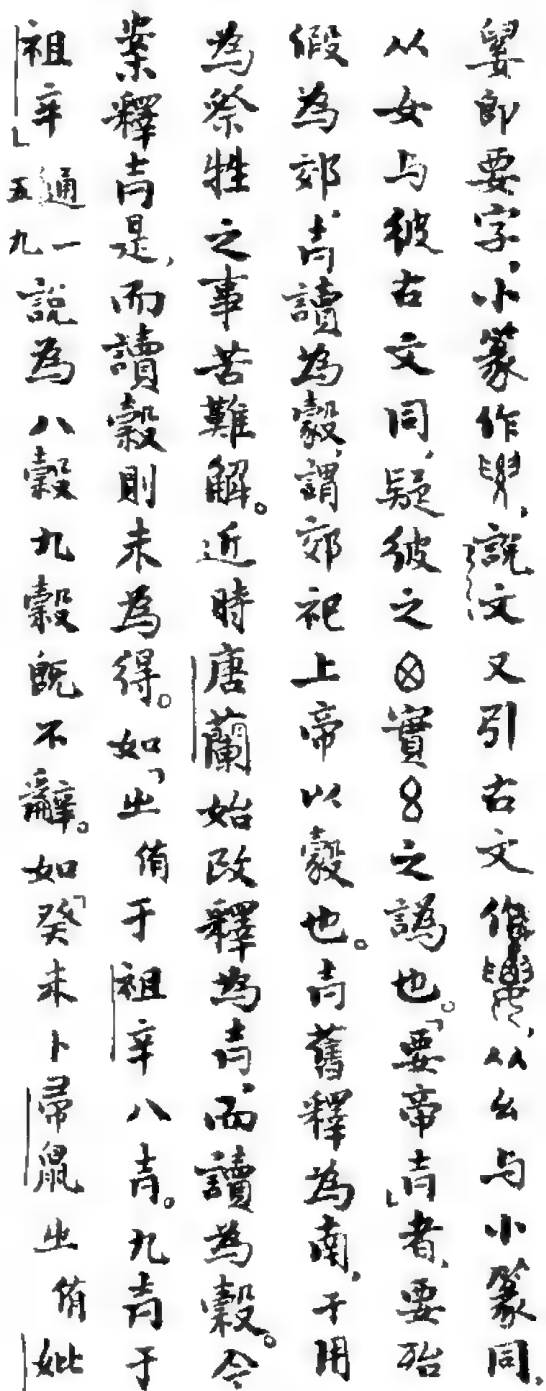 㛐即要字，小篆作，說文又引古文作，从幺与小篆同，
从女与彼古文同，疑彼之實8之譌也。「要帝𡉉」者，要殆
假為郊，𡉉讀為㲉，謂郊祀上帝以㲉也。𡉉舊釋為南，于用
為祭牲之事苦難解。近時唐蘭始改釋為𡉉，而讀為㲉。今
案釋𡉉是，而讀㲉則未為得。如「㞢侑于祖辛八𡉉。九𡉉于
祖辛」通一五九說為八㲉九㲉旣不辭。如「癸未卜帚鼠㞢侑妣